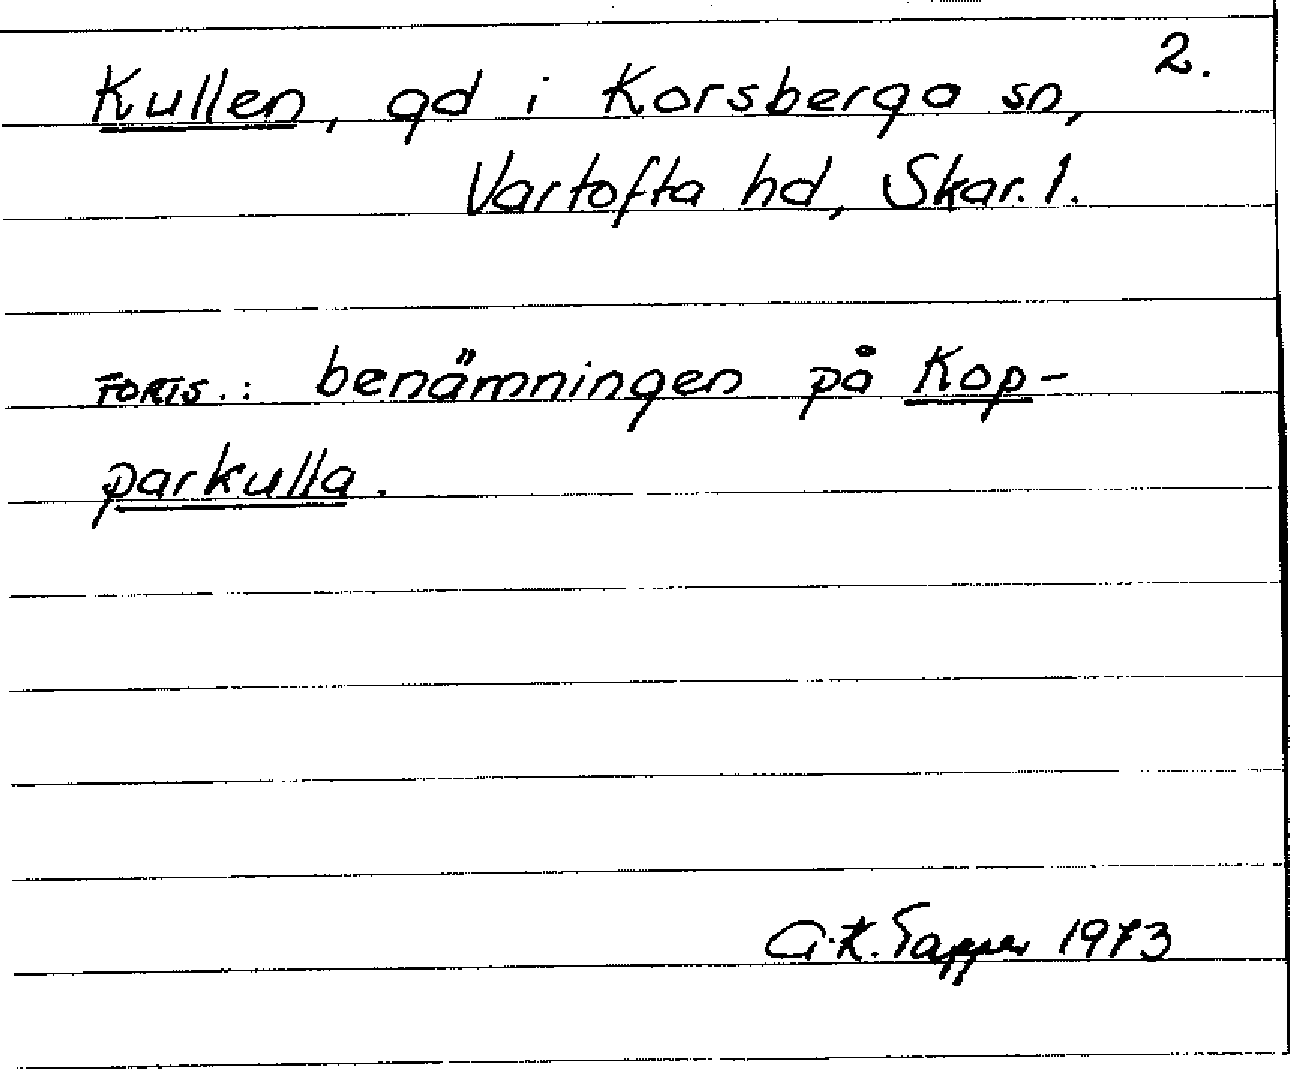 2.
Kullen, gd i Korsberga sn,
Vartofta hd, Skar. l.
FORTS.: benämningen på Kop-
parkulla.
A-K. Tapper 1973